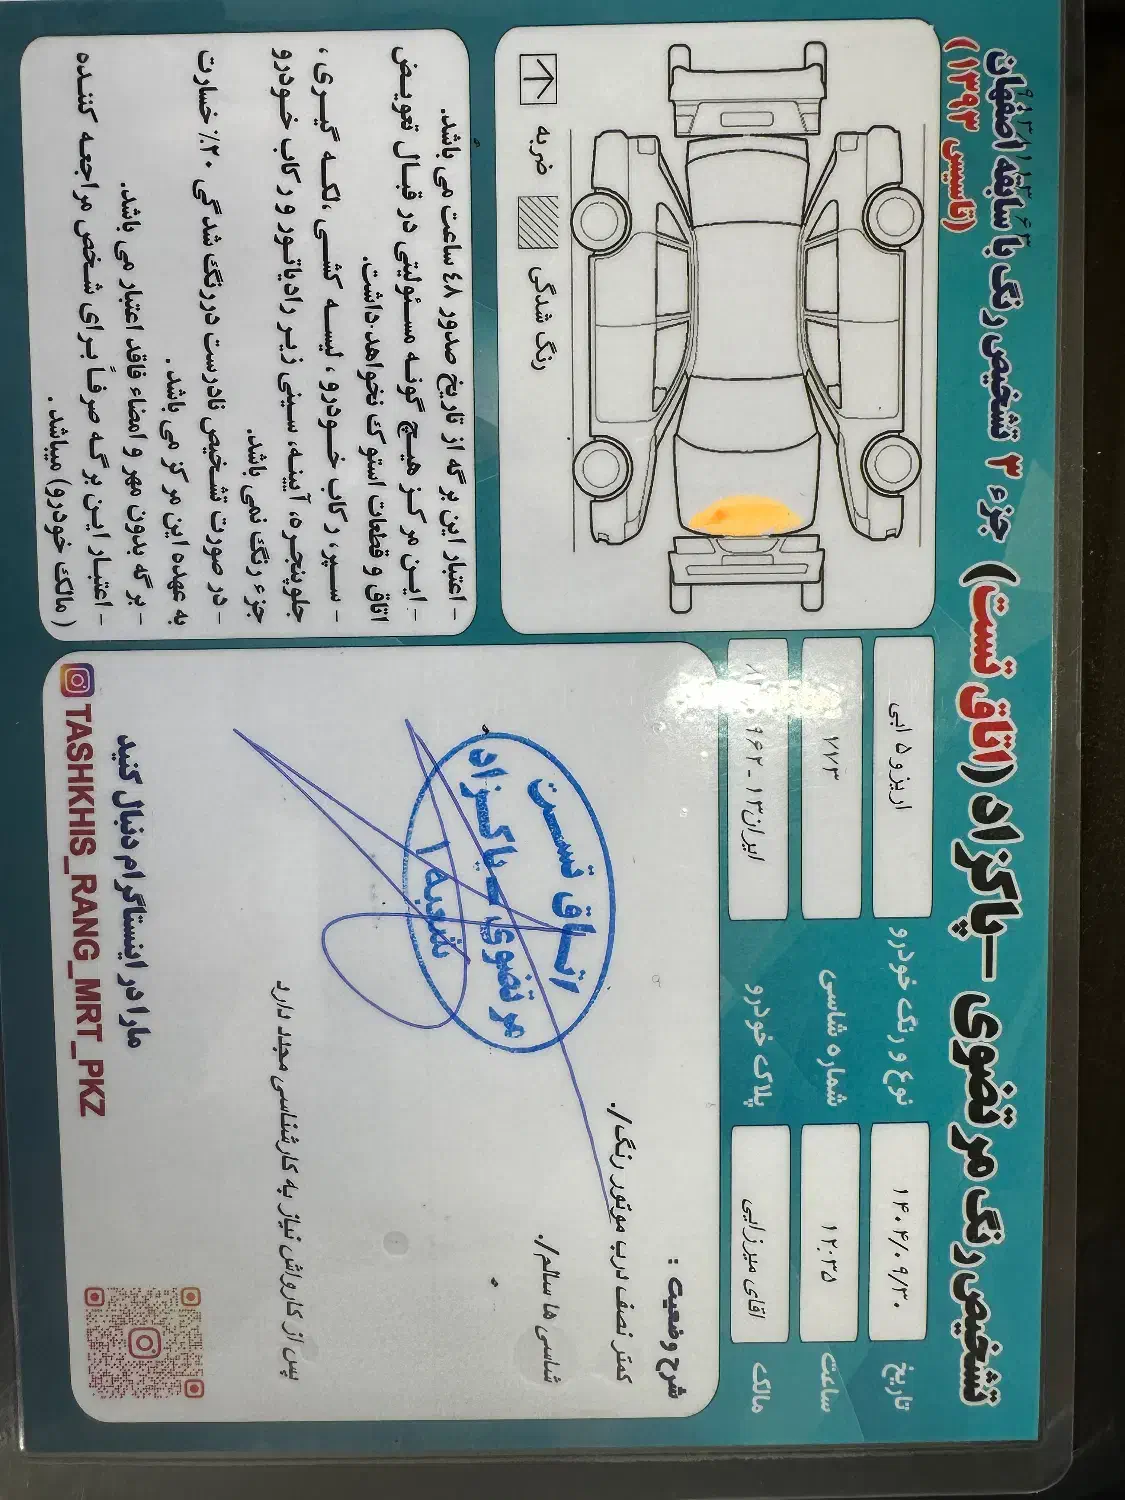 تشخیص رنگ مرتضوی - پاکزاد (اتاق تست) جزء ۳ تشخیص رنگ با سابقه اصفهان
(تاسیس ۱۳۹۳)
تاریخ ۱۴۰۴/۰۹/۳۰
نوع و رنگ خودرو اریزو ۵ ابی
ساعت ۱۲:۳۵
شماره شاسی ۷۷۳
مالک اقای میرزایی
پلاک خودرو ایران۱۳-۹۶۲
ضربه
رنگ شدگی
شرح وضعیت :
کمتر نصف درب موتور رنگ/.
شاسی ها سالم/.
اتاق تست
مرتضوی - پاکزاد
شعبه ۱
پس از کارواش نیاز به کارشناسی مجدد دارد
ما را در اینستاگرام دنبال کنید
TASHKHIS_RANG_MRT_PKZ
- اعتبار این برگه از تاریخ صدور ٤٨ ساعت می باشد.
- این مرکز هیچ گونه مسئولیتی در قبال تعویض
اتاق و قطعات استوک نخواهد داشت.
- سپر، رکاب خودرو، لیسه کشی، لکه گیری،
جلوپنجره، آیینه، سینی زیر رادیاتور و رکاب خودرو
جزء رنگ نمی باشد.
- در صورت تشخیص نادرست در رنگ شدگی ۲۰٪ خسارت
به عهده این مرکز می باشد.
- برگه بدون مهر و امضاء فاقد اعتبار می باشد.
- اعتبار این برگه صرفاً برای شخص مراجعه کننده
( مالک خودرو) میباشد.